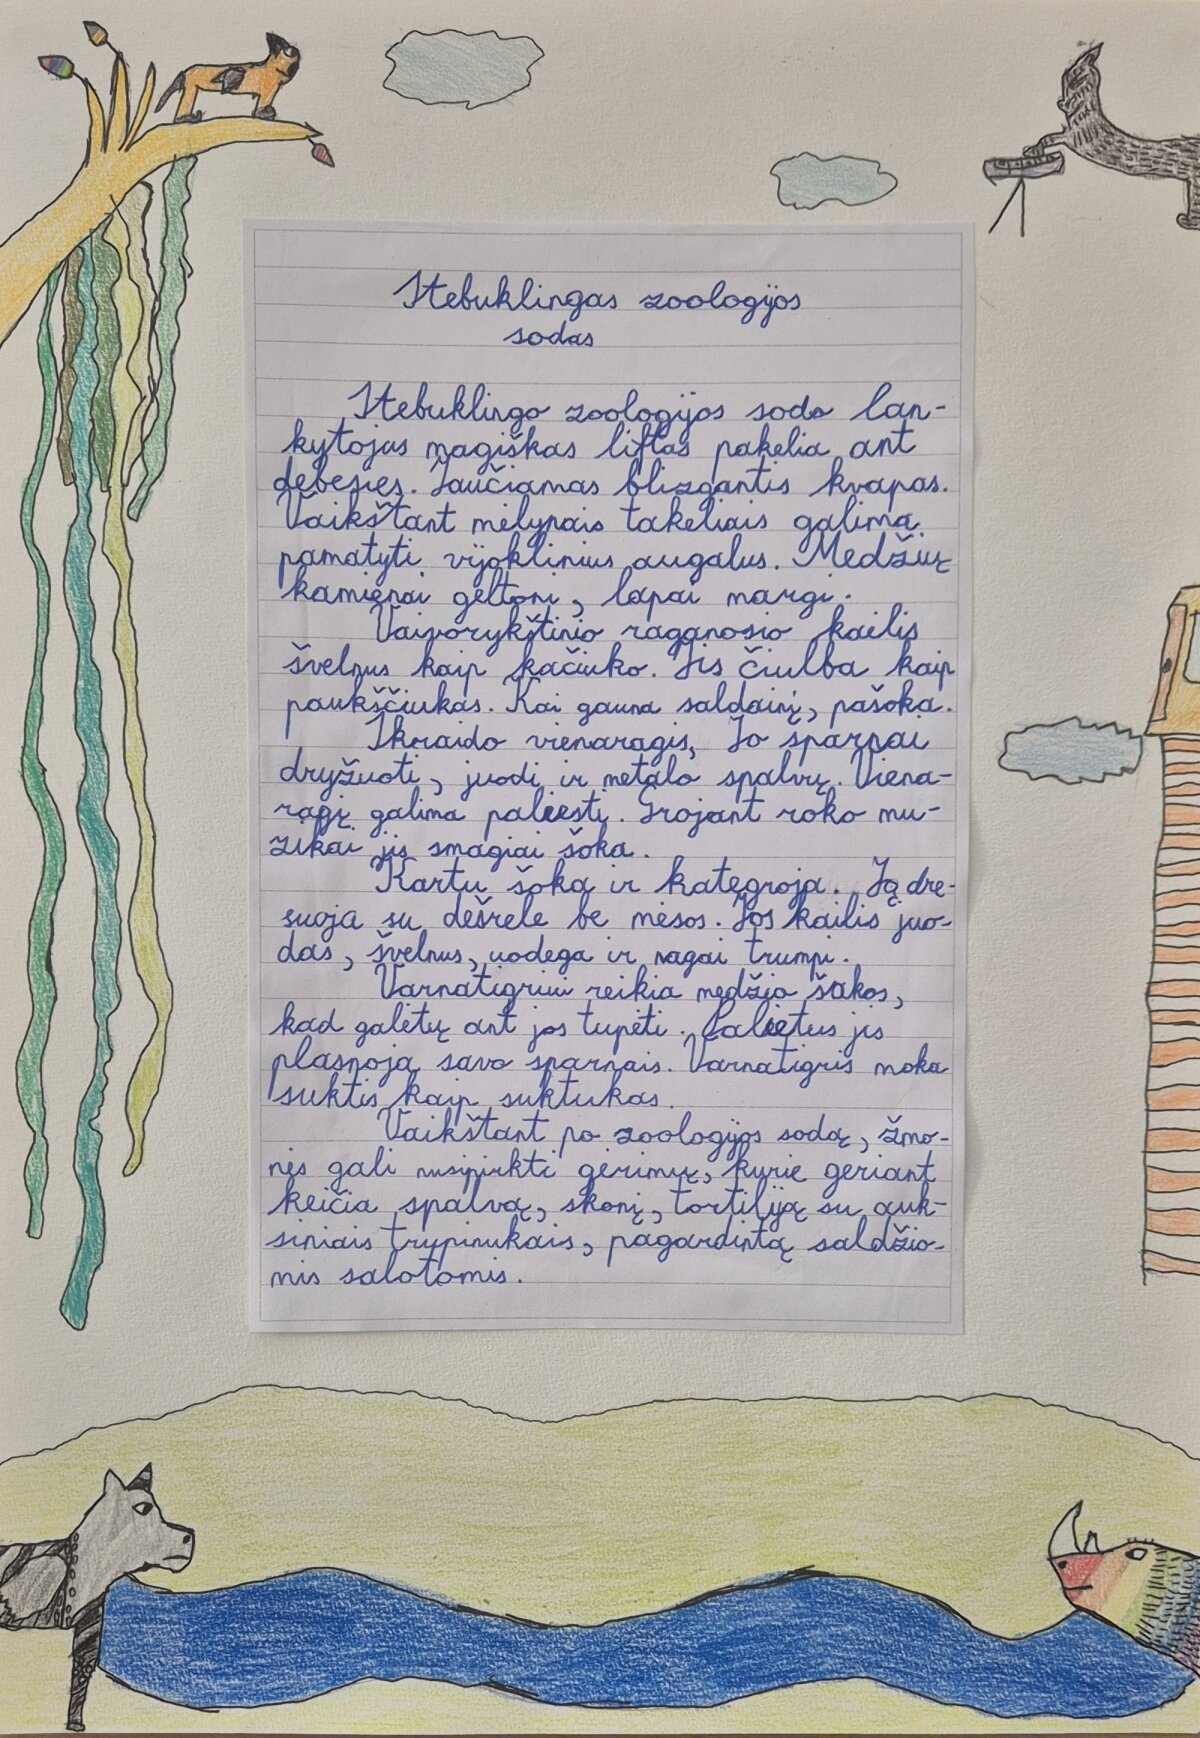 Stebuklingas zoologijos
sodas
Stebuklingo zoologijos sodo lan-
kytojus magiškas liftas pakelia ant
debesies. Jaučiamas blizgantis kvapas.
Vaikštant mėlynais takeliais galima
pamatyti vijoklinius augalus. Medžių
kamienai geltoni, lapai margi.
Vaivorykštinio raganosio kailis
švelnus kaip kačiuko. Jis čiulba kaip
paukščiukas. Kai gauna saldainį, pašoka.
Skraido vienaragis. Jo sparnai
dryžuoti, juodi ir metalo spalvų. Viena-
ragį galima paliesti. Grojant roko mu-
zikai jis smagiai šoka.
Kartu šoka ir kategroja. Ją dre-
suoja su dešrele be mėsos. Jos kailis juo-
das, švelnus, uodega ir nagai trumpi.
Varnatigriui reikia medžio šakos,
kad galėtų ant jos tupėti. Palietus jis
plasnoja savo sparnais. Varnatigris moka
suktis kaip suktukas.
Vaikštant po zoologijos sodą, žmo-
nės gali nusipirkti gėrimų, kurie geriant
keičia spalvą, skonį, tortiliją su auk-
siniais trupinukais, pagardintą saldžio-
mis salotomis.